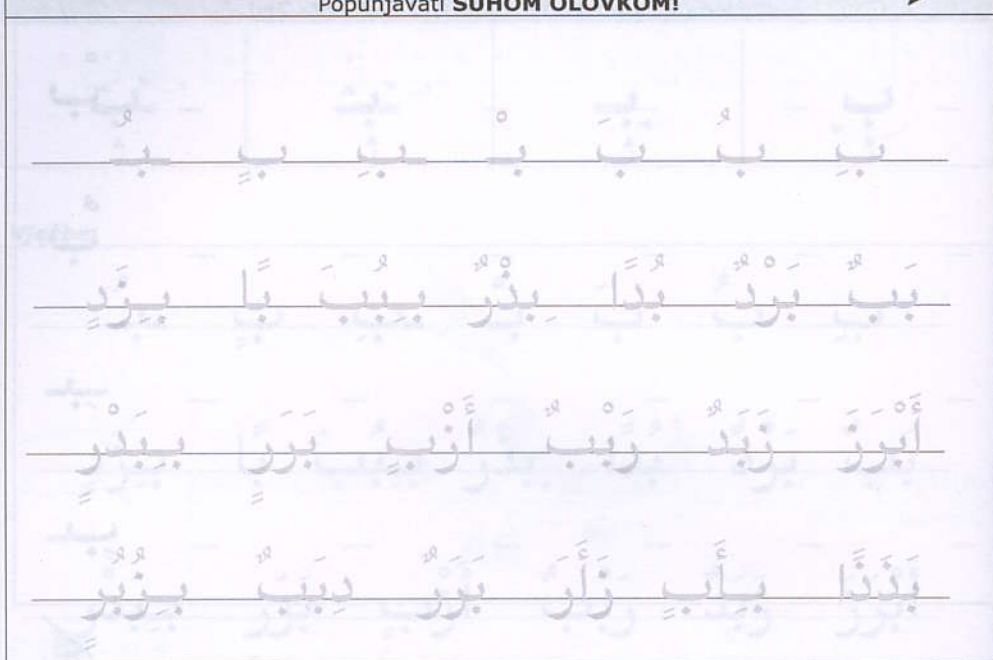 Popunjavati SUHOM OLOVKOM!
بِ بُ بَ بْ ـبِ بٍ ـبُ
بَبٌ بَرْدٌ بُدًا بِذْرٌ بِيُبَ بًا بِزَدٍ
أَبْرَزَ زَبَدٌ رَبْبٌ أَزْبٍ بَرَرٍ بِبَدْرٍ
بَذَذًا بِأَبٍ زَأَرَ بَرَرٌ دِبَبٌ بِزُبُرٍ